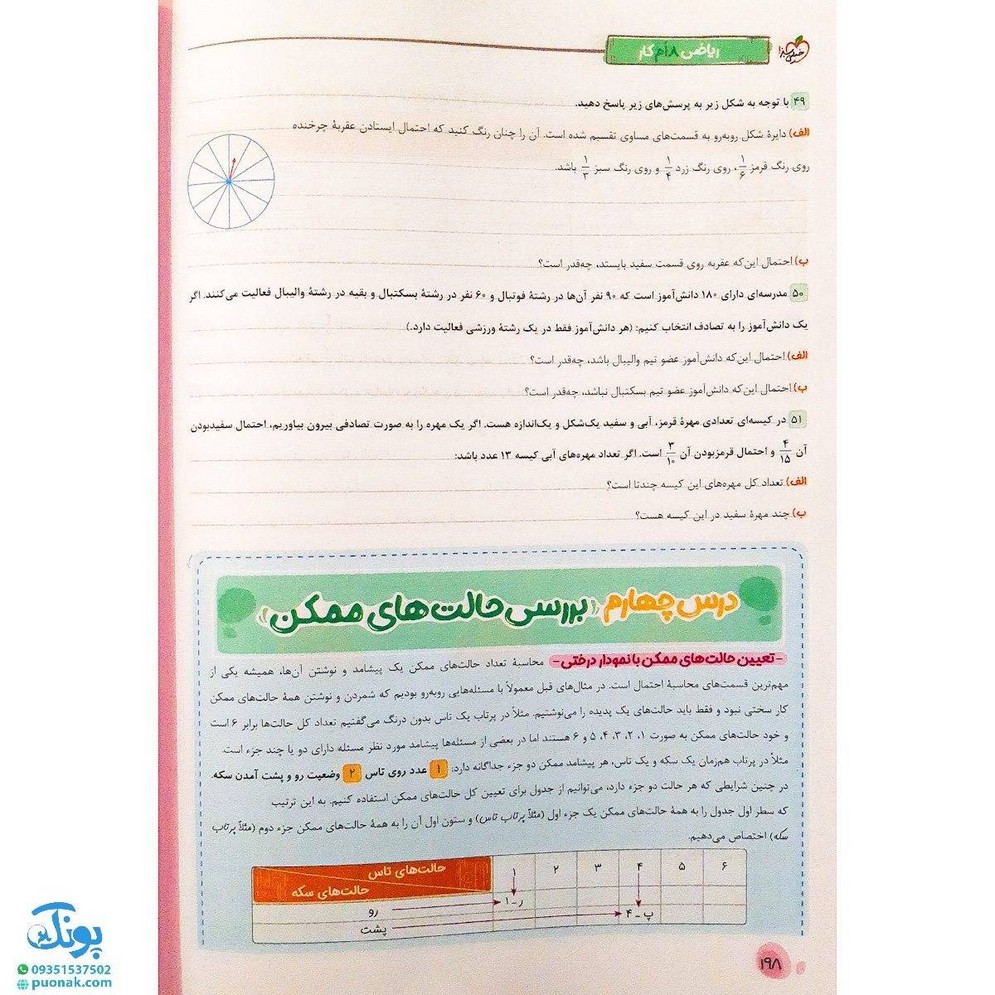 خیلی سبز
ریاضی ۸ام کار
۴۹ با توجه به شکل زیر به پرسش‌های زیر پاسخ دهید.
الف) دایرهٔ شکل روبه‌رو به قسمت‌های مساوی تقسیم شده است. آن را چنان رنگ کنید که احتمال ایستادن عقربهٔ چرخنده
روی رنگ قرمز ۱/۶، روی رنگ زرد ۱/۴ و روی رنگ سبز ۱/۳ باشد.
ب) احتمال این‌که عقربه روی قسمت سفید بایستد، چه‌قدر است؟
۵۰ مدرسه‌ای دارای ۱۸۰ دانش‌آموز است که ۹۰ نفر آن‌ها در رشتهٔ فوتبال و ۶۰ نفر در رشتهٔ بسکتبال و بقیه در رشتهٔ والیبال فعالیت می‌کنند. اگر
یک دانش‌آموز را به تصادف انتخاب کنیم: (هر دانش‌آموز فقط در یک رشتهٔ ورزشی فعالیت دارد.)
الف) احتمال این‌که دانش‌آموز عضو تیم والیبال باشد، چه‌قدر است؟
ب) احتمال این‌که دانش‌آموز عضو تیم بسکتبال نباشد، چه‌قدر است؟
۵۱ در کیسه‌ای تعدادی مهرهٔ قرمز، آبی و سفید یک‌شکل و یک‌اندازه هست. اگر یک مهره را به صورت تصادفی بیرون بیاوریم، احتمال سفیدبودن
آن ۴/۱۵ و احتمال قرمزبودن آن ۳/۱۰ است. اگر تعداد مهره‌های آبی کیسه ۱۳ عدد باشد:
الف) تعداد کل مهره‌های این کیسه چندتا است؟
ب) چند مهرهٔ سفید در این کیسه هست؟
درس چهارم «بررسی حالت‌های ممکن»
- تعیین حالت‌های ممکن با نمودار درختی - محاسبهٔ تعداد حالت‌های ممکن یک پیشامد و نوشتن آن‌ها، همیشه یکی از
مهم‌ترین قسمت‌های محاسبهٔ احتمال است. در مثال‌های قبل معمولاً با مسئله‌هایی روبه‌رو بودیم که شمردن و نوشتن همهٔ حالت‌های ممکن
کار سختی نبود و فقط باید حالت‌های یک پدیده را می‌نوشتیم. مثلاً در پرتاب یک تاس بدون درنگ می‌گفتیم تعداد کل حالت‌ها برابر ۶ است
و خود حالت‌های ممکن به صورت ۱، ۲، ۳، ۴، ۵ و ۶ هستند اما در بعضی از مسئله‌ها پیشامد مورد نظر مسئله دارای دو یا چند جزء است.
مثلاً در پرتاب هم‌زمان یک سکه و یک تاس، هر پیشامد ممکن دو جزء جداگانه دارد: ۱ عدد روی تاس ۲ وضعیت رو و پشت آمدن سکه.
در چنین شرایطی که هر حالت دو جزء دارد، می‌توانیم از جدول برای تعیین کل حالت‌های ممکن استفاده کنیم. به این ترتیب
که سطر اول جدول را به همهٔ حالت‌های ممکن یک جزء اول (مثلاً پرتاب تاس) و ستون اول آن را به همهٔ حالت‌های ممکن جزء دوم (مثلاً پرتاب
سکه) اختصاص می‌دهیم.
حالت‌های تاس ۱ ۲ ۳ ۴ ۵ ۶
حالت‌های سکه
رو ر-۱
پشت پ-۴
۱۹۸
پونک
09351537502
puonak.com